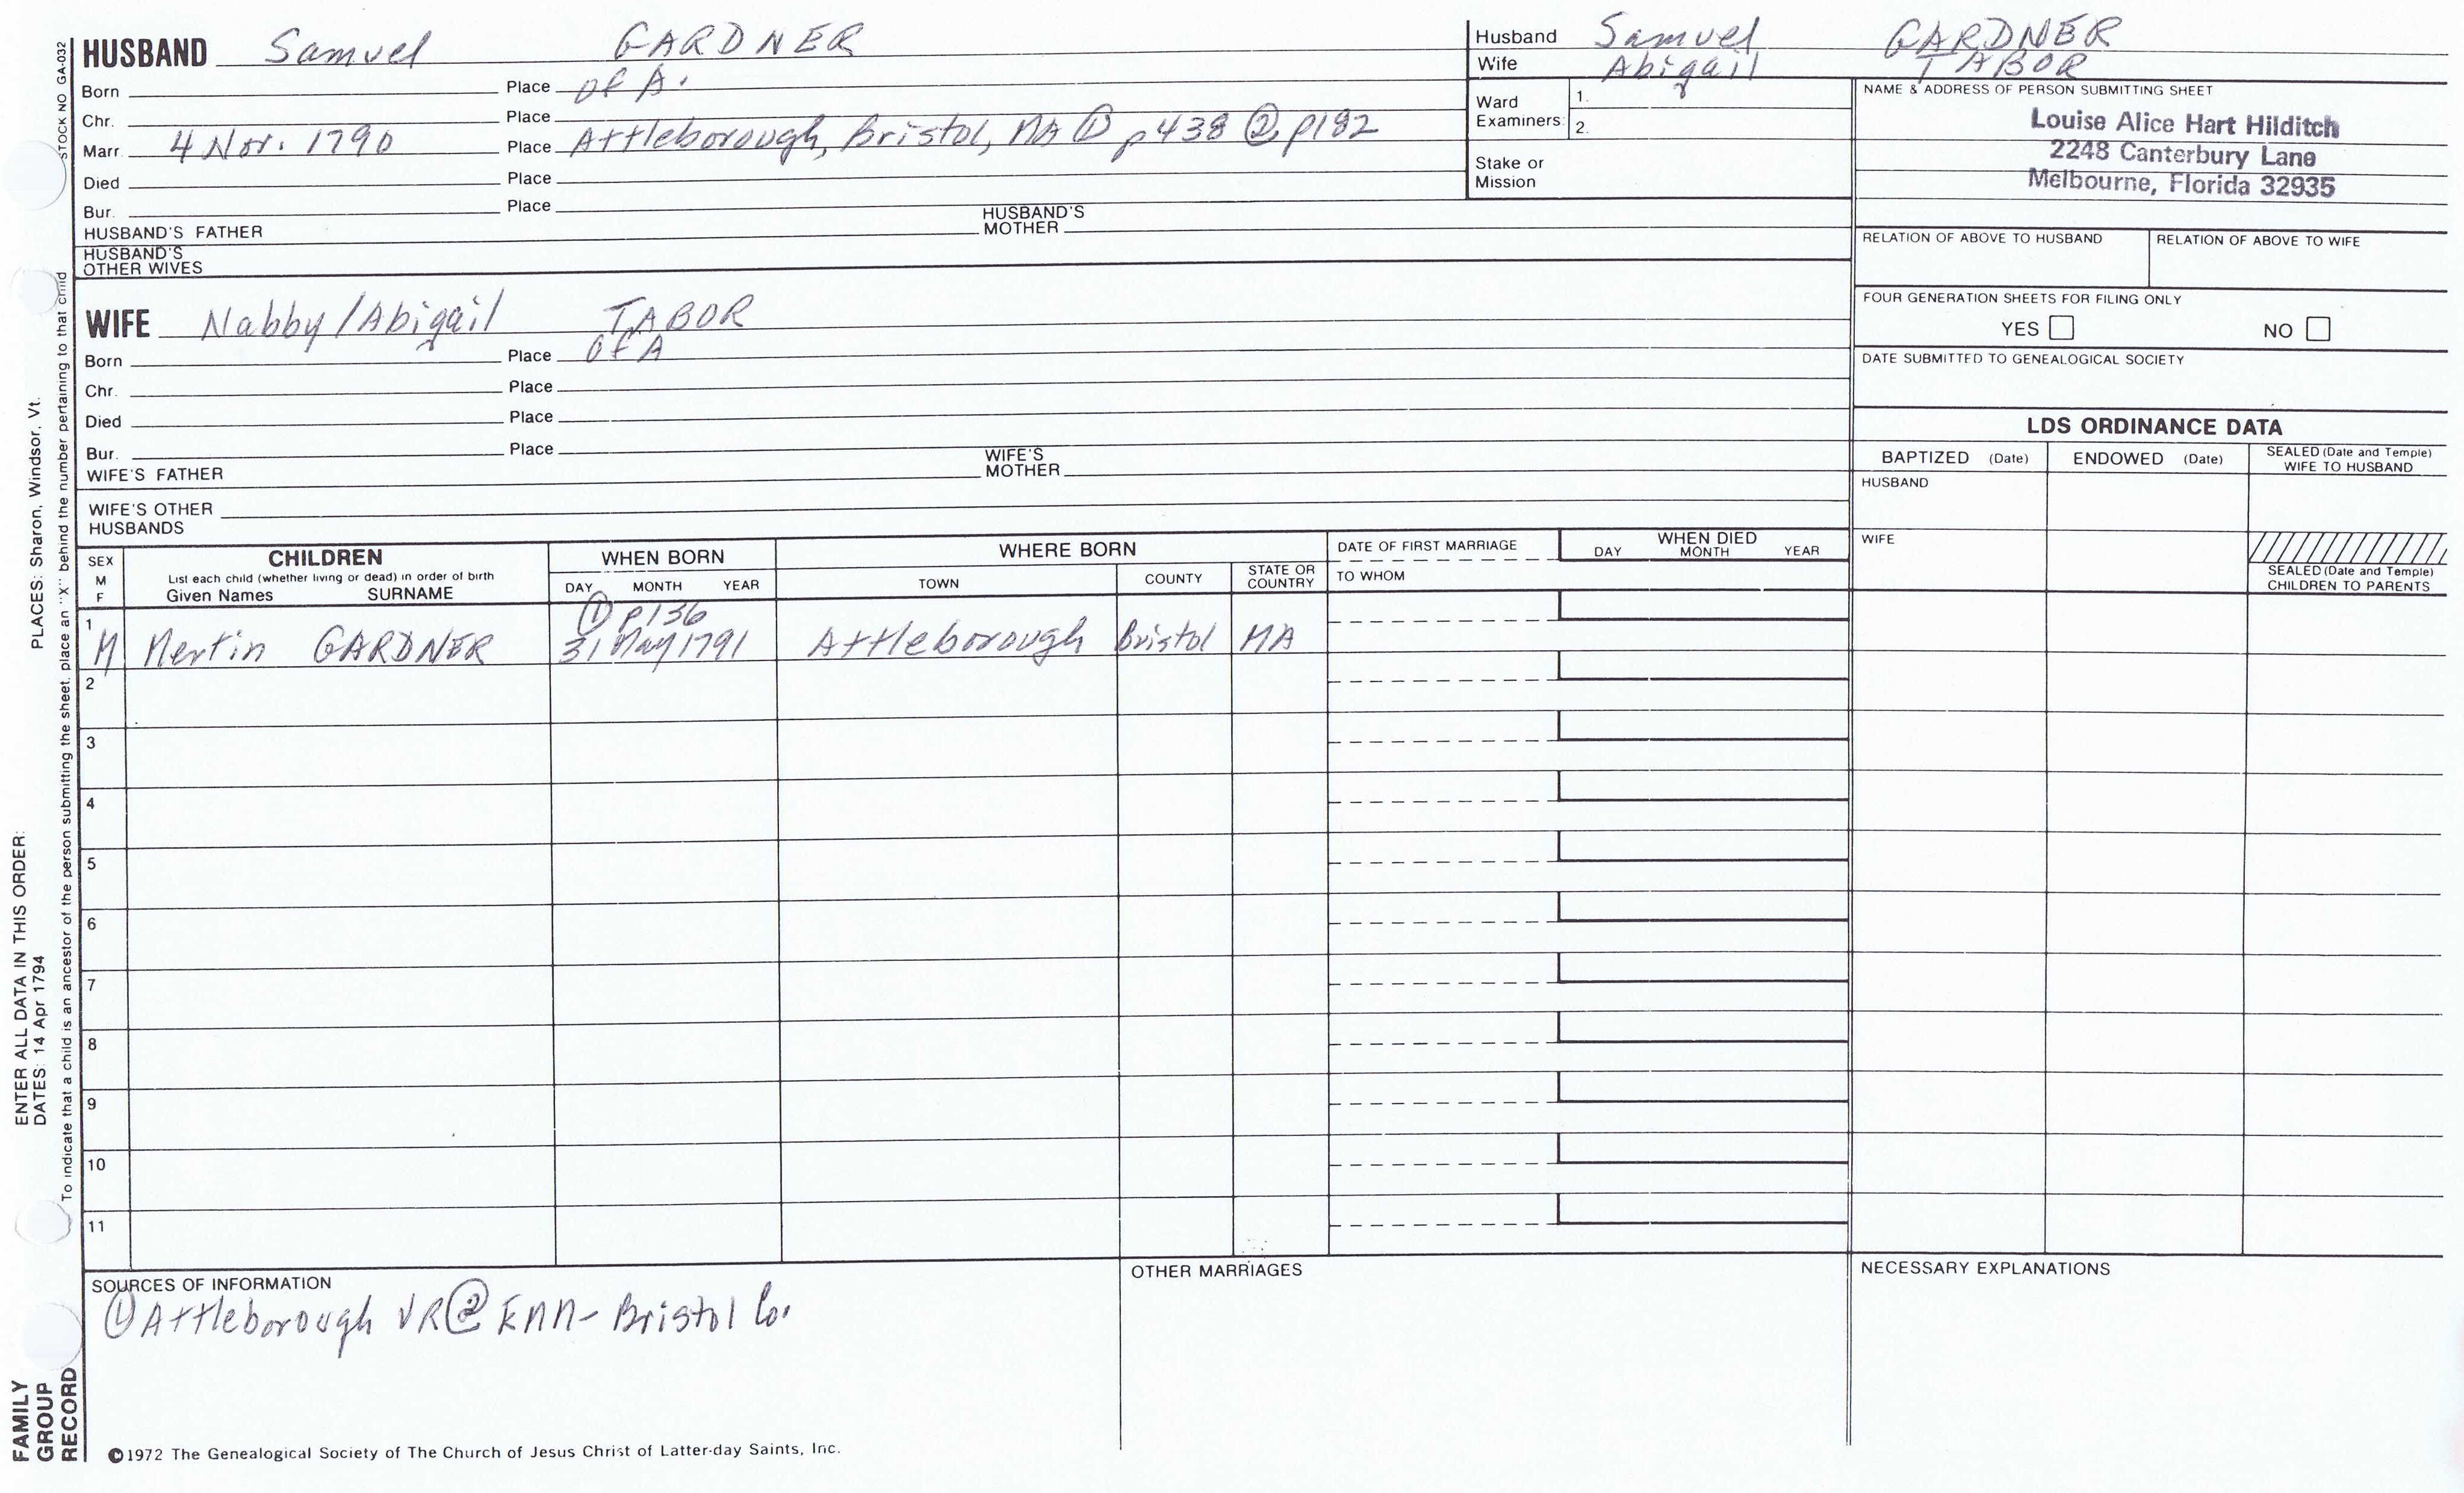 HUSBAND Samuel GARDNER
Born Place of A.
Chr. Place
Marr. 4 Nov. 1790 Place Attleborough, Bristol, MA ① p438 ② p182
Died Place
Bur. Place
HUSBAND'S FATHER HUSBAND'S MOTHER
HUSBAND'S OTHER WIVES
Husband Samuel GARDNER
Wife Abigail TABOR
Ward Examiners: 1. 2.
Stake or Mission
NAME & ADDRESS OF PERSON SUBMITTING SHEET
Louise Alice Hart Hilditch
2248 Canterbury Lane
Melbourne, Florida 32935
RELATION OF ABOVE TO HUSBAND RELATION OF ABOVE TO WIFE
FOUR GENERATION SHEETS FOR FILING ONLY
YES NO
DATE SUBMITTED TO GENEALOGICAL SOCIETY
WIFE Nabby/Abigail TABOR
Born Place of A
Chr. Place
Died Place
Bur. Place
WIFE'S FATHER WIFE'S MOTHER
WIFE'S OTHER HUSBANDS
LDS ORDINANCE DATA
BAPTIZED (Date) ENDOWED (Date) SEALED (Date and Temple) WIFE TO HUSBAND
HUSBAND
WIFE
SEALED (Date and Temple) CHILDREN TO PARENTS
SEX M F
CHILDREN
List each child (whether living or dead) in order of birth
Given Names SURNAME
WHEN BORN
DAY MONTH YEAR
WHERE BORN
TOWN COUNTY STATE OR COUNTRY
DATE OF FIRST MARRIAGE
TO WHOM
WHEN DIED
DAY MONTH YEAR
① p136
1 M Mertin GARDNER 31 May 1791 Attleborough Bristol MA
2
3
4
5
6
7
8
9
10
11
SOURCES OF INFORMATION
① Attleborough VR ② EMM- Bristol Co.
OTHER MARRIAGES
NECESSARY EXPLANATIONS
©1972 The Genealogical Society of The Church of Jesus Christ of Latter-day Saints, Inc.
STOCK NO GA-032
To indicate that a child is an ancestor of the person submitting the sheet, place an "X" behind the number pertaining to that child
ENTER ALL DATA IN THIS ORDER:
PLACES: Sharon, Windsor, Vt.
DATES: 14 Apr 1794
FAMILY
GROUP
RECORD